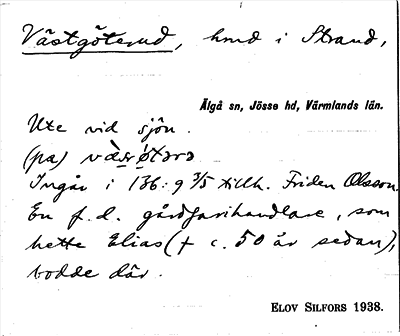 Västgöterud, hmd i Strand,
Älgå sn, Jösse hd, Värmlands län.
Ute vid sjön.
(pa) 
Ingår i 136:9 3/5 tillh. Friden Olsson.
En f.d. gårdfarihandlare, som
hette Elias († c. 50 år sedan),
bodde där.
ELOV SILFORS 1938.